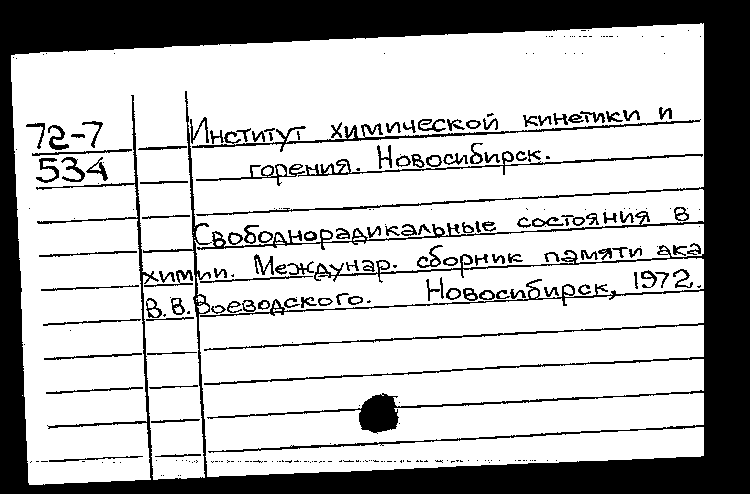 72-7
534
Институт химической кинетики и
горения. Новосибирск.
Свободнорадикальные состояния в
химии. Междунар. сборник памяти ака
В.В.Воеводского. Новосибирск, 1972.